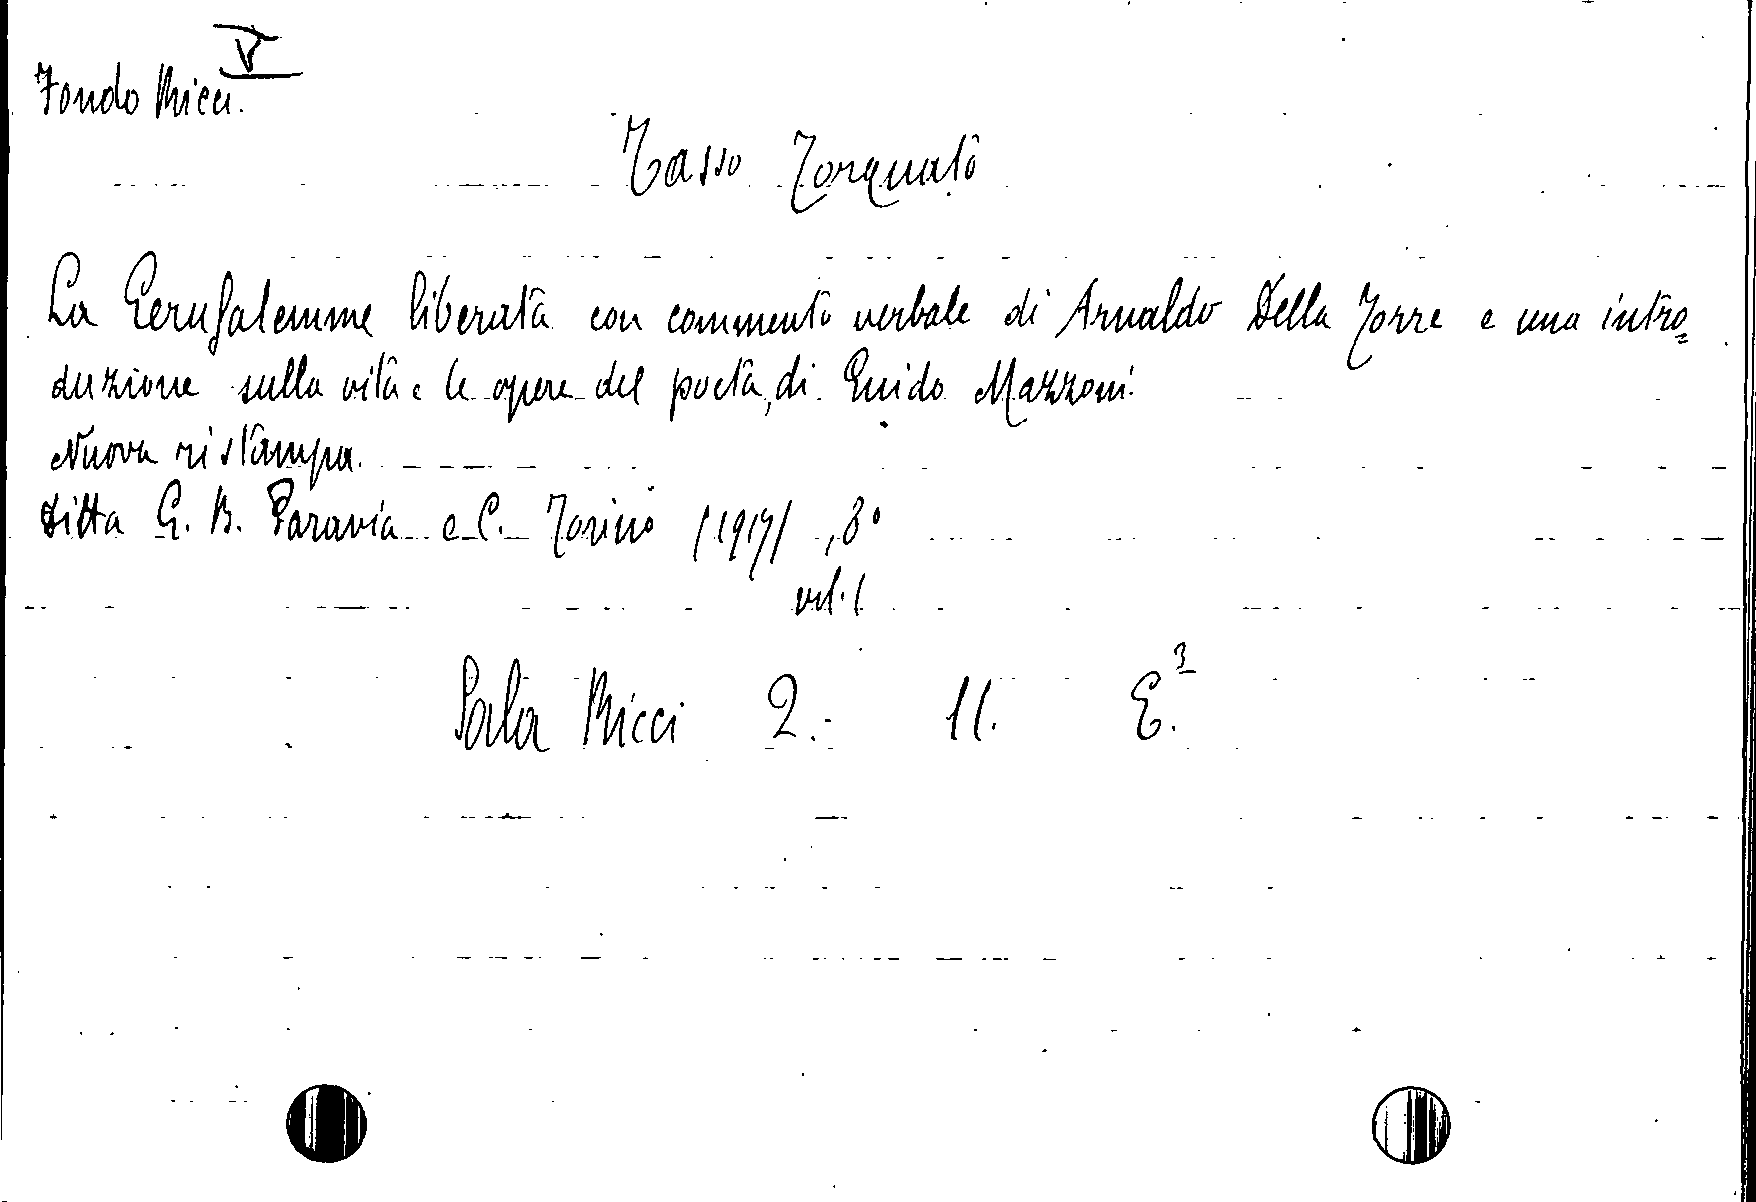 V
Fondo Ricci.
Tasso Torquato
La Gerusalemme liberata con commento verbale di Arnaldo Della Torre e una intro=
duzione sulla vita e le opere del poeta, di Guido Mazzoni.
Nuova ristampa.
Ditta G. B. Paravia e C. Torino (1917) , 8°
vol. 1
Sala Ricci 2.- 11. E.³